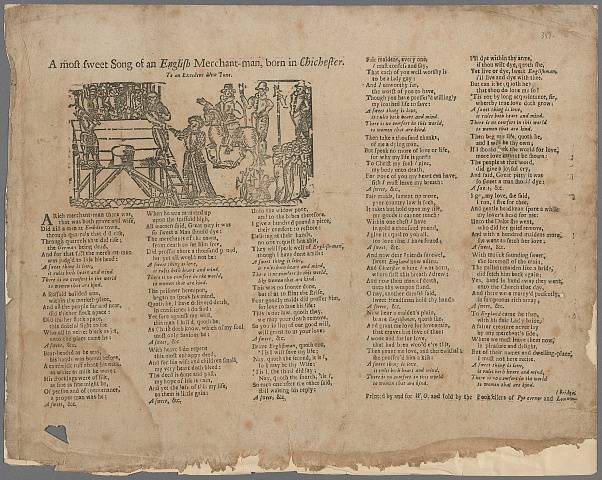 A most sweet Song of an English Merchant-man, born in Chichester.
To an Excellent New Tune.
A Rich Merchant-man there was,
that was both grave and wise,
Did kill a man at Embden town,
through quarrels that did rise;
the German being dead,
And for that fact the merchant-man
was judg'd to lose his head:
A sweet thing is love,
it rules both heart and mind,
There is no comfort in the world
to women that are kind.
A Scaffold builded was,
within the market-place,
And all the people far and near,
did thither flock apace:
this doleful sight to see
Who all in velvet black as jet,
unto the place came he:
A sweet, &c.
Bare-headed as he was,
his hands were bound before,
A cambrick ruff about his neck,
as white as milk he wore:
His stockings were of silk,
as fine as fine might be,
Of person and of countenance,
a proper man was he:
A sweet, &c.
When he was mounted up
upon the scaffold high,
All women said, Great pity it was
so sweet a Man should dye:
The merchants of the town,
from death to set him free,
Did proffer there a thousand pound,
but yet all would not be:
A sweet thing is love,
it rules both heart and mind,
There is no comfort in the world
to women that are kind.
The prisoner hereupon,
began to speak his mind,
Quoth he, I have deserved death,
in conscience I do find:
Yet sore against my will,
this man I kill'd, quoth he,
As Christ doth know, which of my soul
must only saviour be:
A sweet, &c.
With heart I do repent
this most unhappy deed,
And for his wife and children small,
my very heart doth bleed:
The deed is done and past,
my hope of life is vain,
And yet the loss of this my life,
to them is little gain:
A sweet, &c.
Unto the widow poor,
and to the babes therefore,
I give a hundred pound a piece,
their comfort to restore:
Desiring at their hands,
no one request but this,
They will speak well of English-men,
though I have done amiss:
A sweet thing is love,
it rules both heart and mind,
There is no comfort in the world,
to women that are kind.
This was no sooner done,
but that to stint the strife,
Four goodly maids did proffer him,
for love to save his life:
This is our law, quoth they,
we may your death remove,
So you in lieu of our good will,
will grant to us your love:
A sweet, &c.
Brave Englishman, quoth one,
'tis I will save thy life;
Nay, quoth the second, it is I,
so I may be thy Wife:
'tis I, the third did say;
Nay, quoth the fourth, 'tis I,
So each one after the other said,
still waiting his reply:
A sweet, &c.
Fair maidens, every one,
I must confess and say,
That each of you well worthy is
to be a lady gay:
And I unworthy far,
the worst of you to have,
Though you have proffer'd willingly
my loathsed life to save:
A sweet thing is love,
it rules both heart and mind,
There is no comfort in this world
to women that are kind.
Then take a thousand thanks,
of me a dying man,
But speak no more of love or life,
for why my life is gone:
To Christ my soul I give,
my body unto death,
For none of you my heart can have,
sith I must leave my breath:
A sweet, &c.
Fair maids, lament no more,
your country law is such,
It takes but hold upon my life,
my goods it cannot touch:
Within one chest I have
in gold a thousand pound,
I give it equal to you all,
for love that I have found;
A sweet, &c.
And now dear friends farewel,
sweet England also adieu,
And Chichester where I was born,
where first this breath I drew:
And now thou man of death,
unto thy weapon stand,
O nay, another damsel said,
sweet Friend now hold thy hand:
A sweet, &c.
Now hear a maiden's plaint,
brave Englishman, quoth she,
And grant me love for love again,
that craves but love of thee:
I woo and sue for love,
that had been woo'd e're this,
Then grant me love, and therewithal
she proffer'd him a kiss:
A sweet thing is love,
it rules both heart and mind,
There is no comfort in this world
to women that are kind.
I'll dye within thy arms,
if thou wilt dye, quoth she,
Yet live or dye, sweet Englishman,
I'll live and dye with thee.
But can it be, quoth he,
that thou do love me so?
'Tis not by long acquaintance, sir,
whereby true love doth grow:
A sweet thing is love,
it rules both heart and mind,
There is no comfort in this world
to women that are kind.
Then beg my life, quoth he,
and I will be thy own,
If I should seek the world for love,
more love cannot be shown:
The people at that word,
did give a joyful cry,
And said, Great pity it was
so sweet a man should dye:
A sweet, &c.
I go, my love, she said,
I run, I flie for thee,
And gentle headsman spare a while
my lover's head for me:
Unto the Duke she went,
who did her grief remove,
And with a hundred maidens more,
she went to fetch her love:
A sweet, &c.
With musick sounding sweet,
the foremost of the train,
The gallant maiden like a bride,
did fetch him back again;
Yea, hand in hand away they went,
unto the Church that day,
And they were married presently,
in sumptuous rich array:
A sweet, &c.
To England came he then,
with his fair Lady so free;
A fairer creature never lay
by any merchant's side,
Where we must leave them now,
in pleasure and delight,
But of their names and dwelling-place,
I must not here recite.
A sweet thing is love,
it rules both heart and mind,
There is no comfort in the world
to women that are kind.
Printed by and for W. O. and sold by the Booksellers of Pye corner and London-
(Bridge.